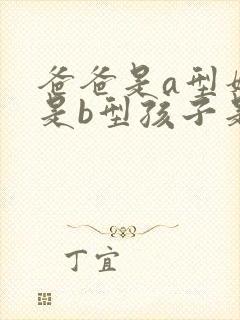 爸爸是a型
是b型孩子
丁宜